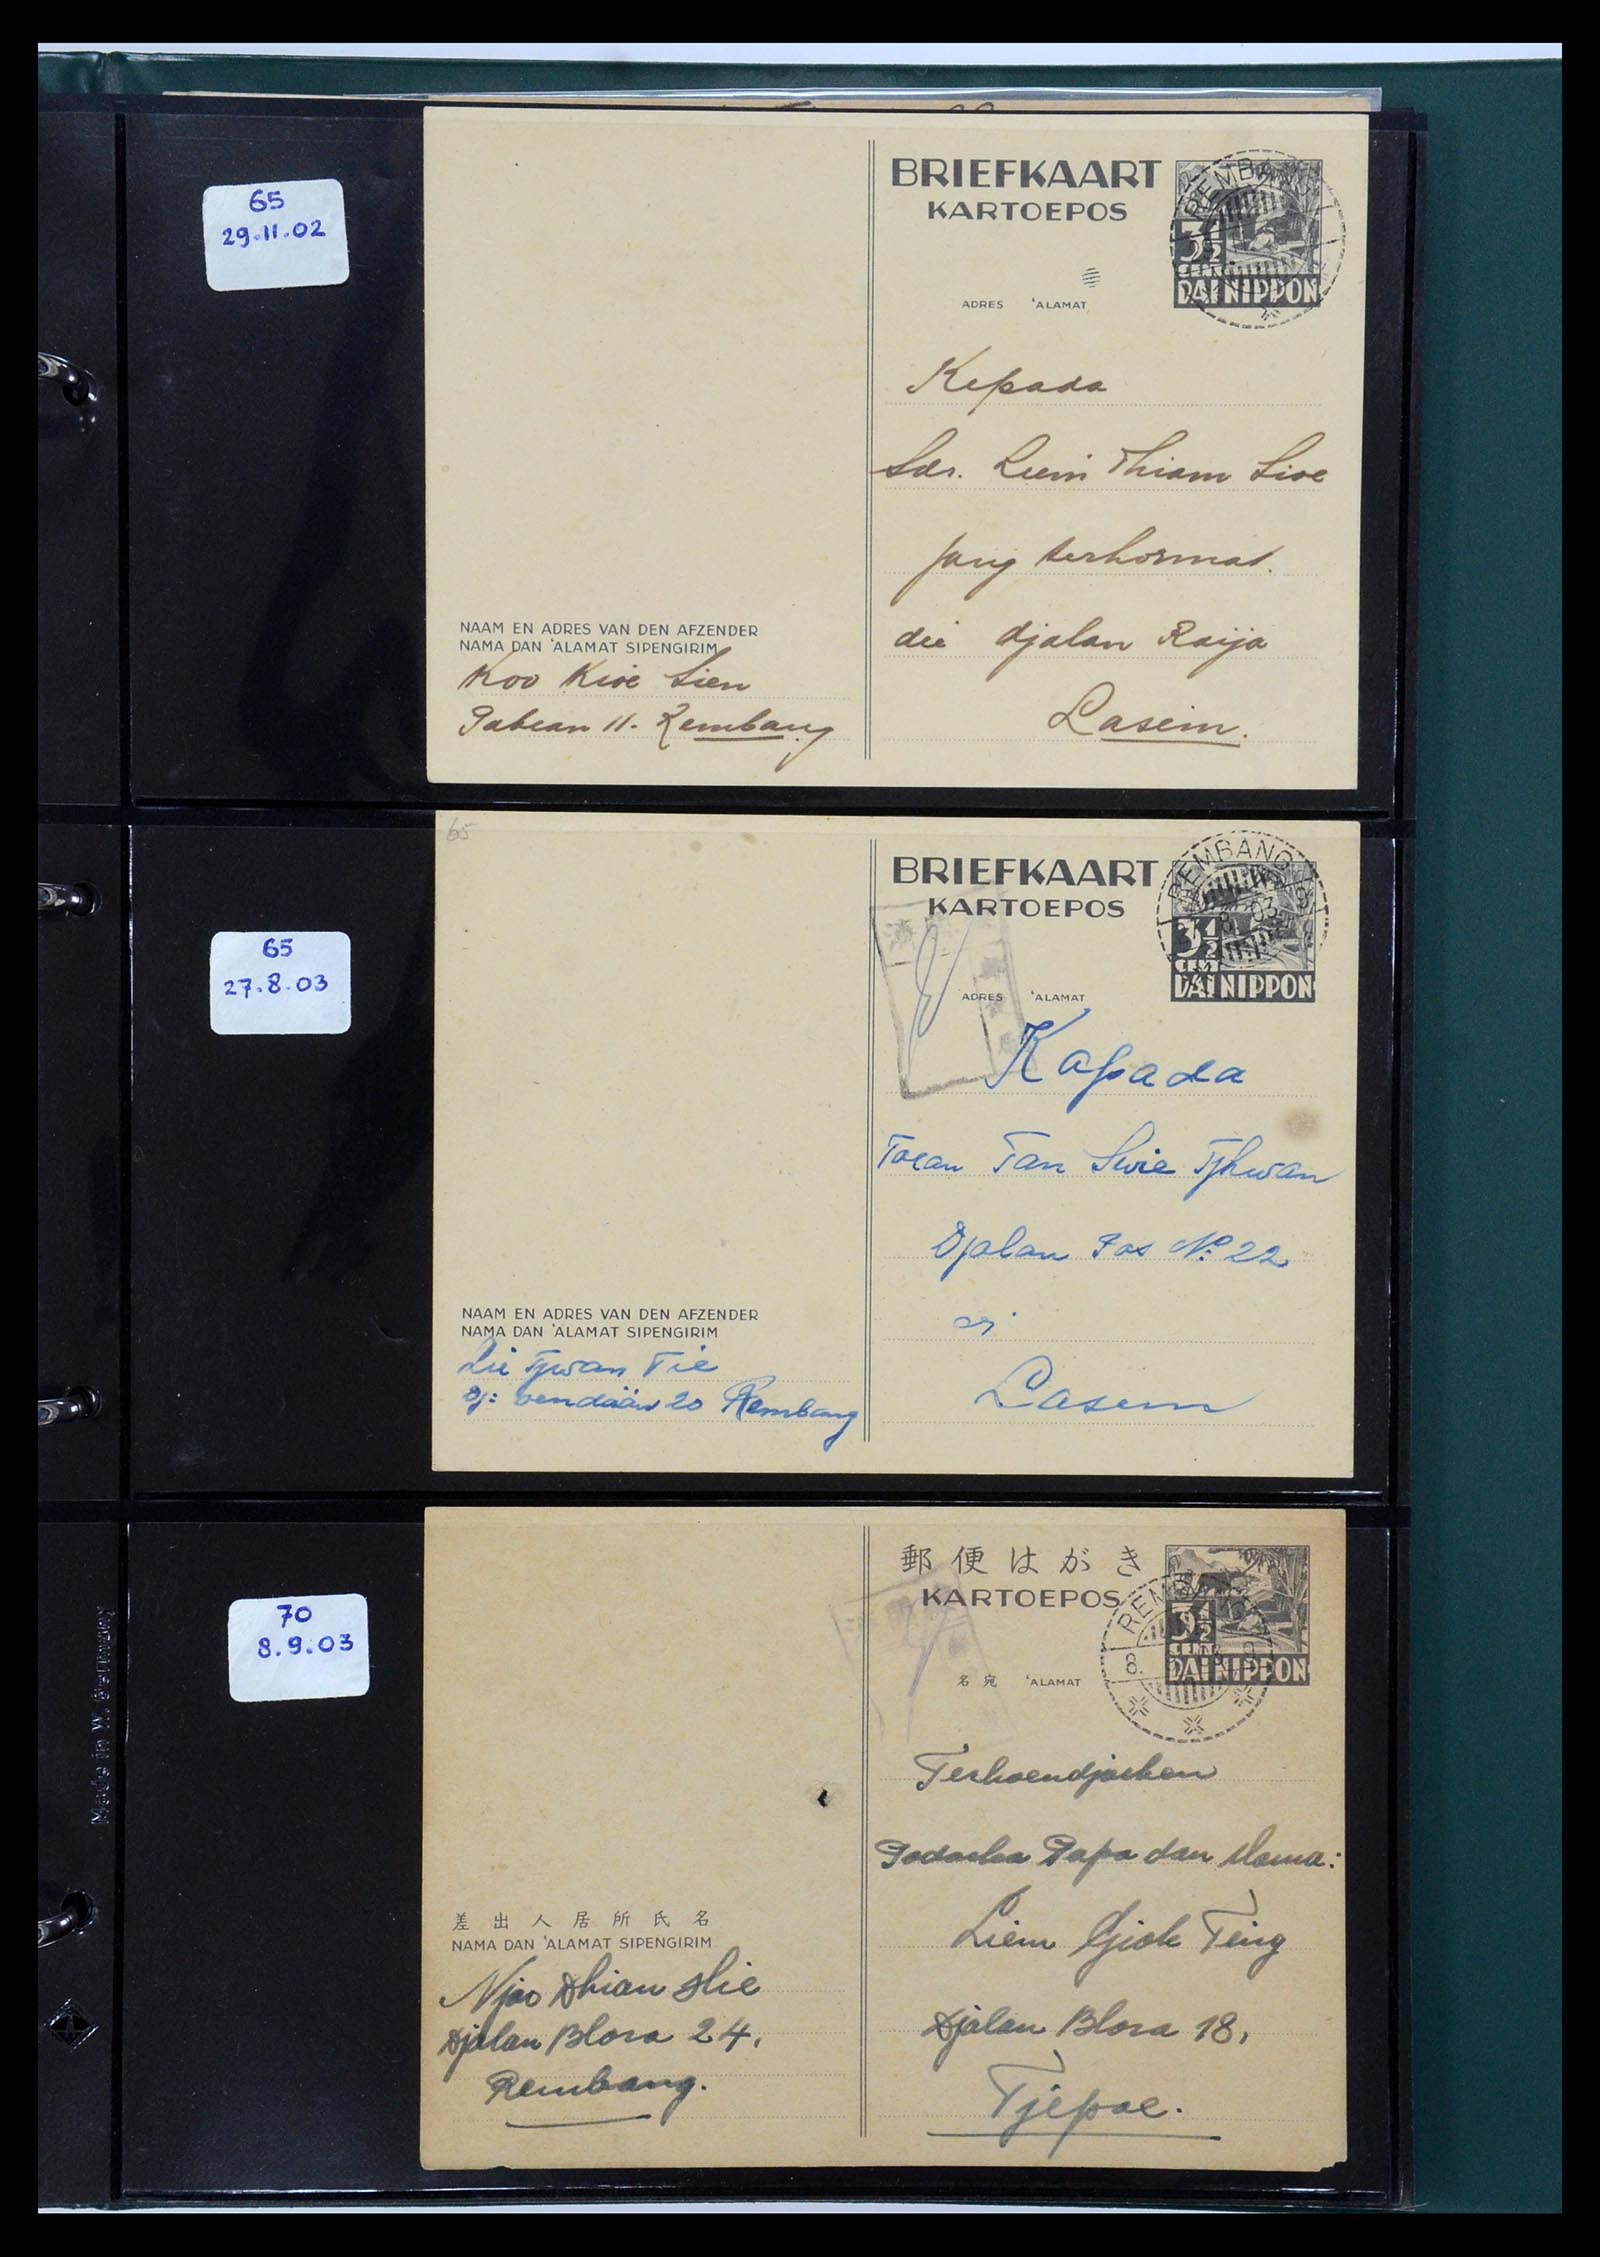 65
29.11.02
BRIEFKAART
KARTOEPOS
REMBANG
3½
CENT
DAI NIPPON
ADRES 'ALAMAT
Kepada
Sdr. Liem Thiam Sioe
jang terhormat.
die djalan Raija
Lasem.
NAAM EN ADRES VAN DEN AFZENDER
NAMA DAN 'ALAMAT SIPENGIRIM
Koo Kioe Sien
Pabean 11. Rembang
65
65
27.8.03
BRIEFKAART
KARTOEPOS
REMBANG
8. 03
3½
CENT
DAI NIPPON
ADRES 'ALAMAT
Kapada
Toean Tan Swie Tjhwan
Djalan Pos No. 22
di
Lasem
NAAM EN ADRES VAN DEN AFZENDER
NAMA DAN 'ALAMAT SIPENGIRIM
Lie Tjwan Tie
Dj: vendăăn 20 Rembang
Made in W. Germany
70
8.9.03
郵便はがき
KARTOEPOS
REMBANG
8.
3½
CENT
DAI NIPPON
名宛 'ALAMAT
Terhoendjoeken
Padaeka Papa dan Mama:
Liem Giok Ting
Djalan Blora 18,
Tjepoe.
差出人居所氏名
NAMA DAN 'ALAMAT SIPENGIRIM
Njoo Dhian Hie
Djalan Blora 24,
Rembang.